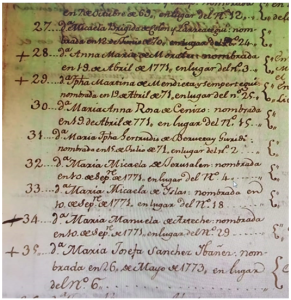 en 7 de Octubre de 69, en lugar del Nº 12
27. Dª Micaela Brigida de
brada en 12 de Junio de 70, en lugar del Nº 24.
+ 28. Dª Anna Maria de nombrada
en 19 de Abril de 1771, en lugar del Nº 3.
+ 29. Dª Jpha Martina de Mendieta y
nombrada en 19 de Abril de 771, en lugar del Nº 25.
30. Dª Maria Anna Rosa de Cenizo: nombrada
en 19 de Abril de 771, en lugar del Nº 15.
31. Dª Maria Jpha Gertrudis de
nombrada en 5 de Julio de 71, en lugar del Nº 2
32. Dª Maria Micaela de Jerusalen: nombrada
en 10. de Sepre. de 1771, en lugar del Nº 4
33. Dª Maria Micaela de Yslas: nombrada en
10. de Sepre. de 1771, en lugar del Nº 18
+ 34. Dª Maria Manuela de Arteche: nombrada
en 10. de Sepre. de 771, en lugar del Nº 29
+ 35. Dª Maria Josefa Sanchez Ibañez: nom-
brada en 26. de Mayo de 1773, en lugar
del Nº 6.